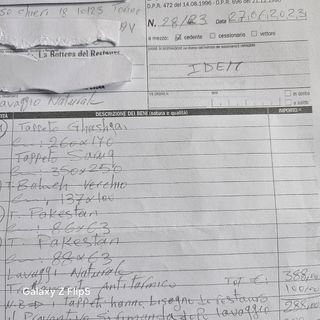 so Chieri 18 10123 Torino
D.P.R. 472 del 14.08.1996 - D.P.R. 696 del 21.12.1996
N. 28/23 Data 27.06.2023
a mezzo: cedente cessionario vettore
La Bottega del Restauro
IDEM
Lavaggio Naturale
in conto
a saldo
DESCRIZIONE DEI BENI (natura e qualità)
IMPORTO
Tappeto Ghashgai
cm: 260x170
Tappeto Saruq
cm: 350x250
T. Baluch Vecchio
cm; 137x100
T. Pakestan
cm: 86x63
T. Pakestan
cm: 88x63
Lavaggi Naturale
Antitarmico
Tot €: 388,00
100,00
N.B. Tappeti hanno bisogno de restauro
288,00
Preventivo si rimanda dopo lavaggio
Galaxy Z Flip5